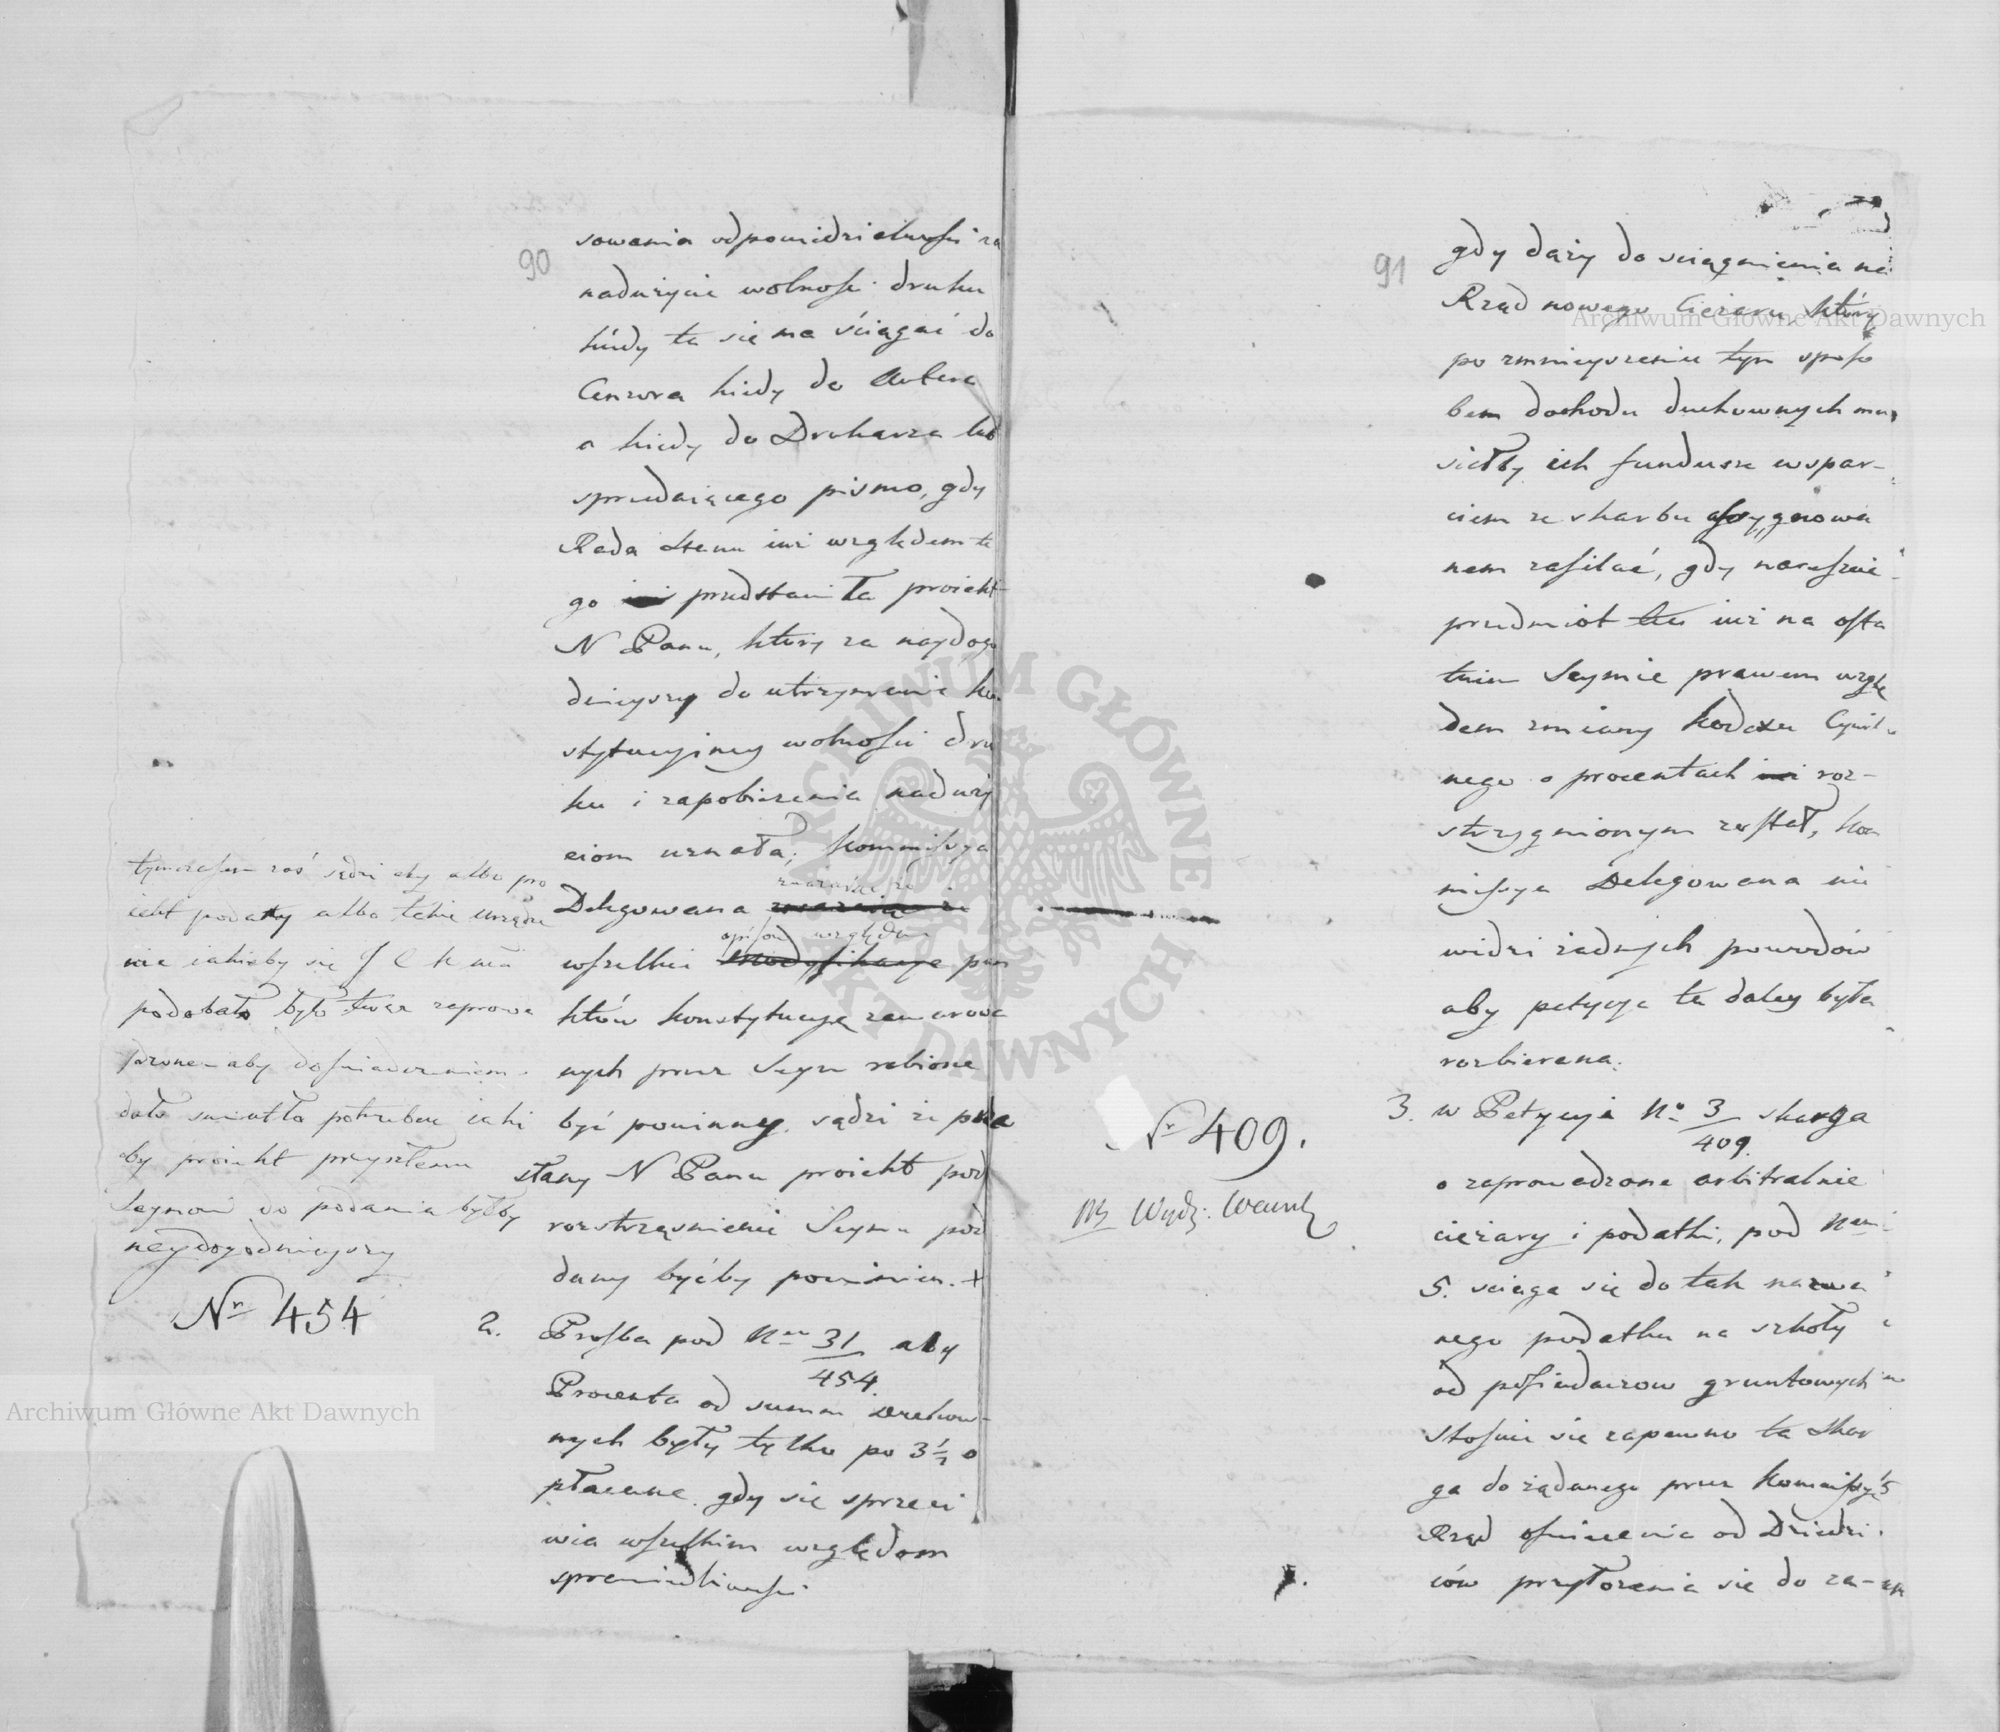 90
sowania odpowiedzialnosci za
nadużycie wolności druku
kiedy ta się ma ściągać do
Cenzora kiedy do Autora
a kiedy do Drukarza lub
sprzedaiącego pismo, gdy
Rada Stanu iuż względem te
go przedstawiła proiekt
N Panu, który za naydogo
dnieyszy do utrzymania kon
stytucyiney wolności dru
ku i zapobieżenia naduży
ciom uznała; Kommissya
Delegowana zważaiąc że
wszelkie opisow względem pun
któw konstytucyą zawarowa
nych przez Seym robione
być powinny, sądzi że prze
słany N Panu proiekt pod
rozstrząśnienie Seymu pod
dany byćby powinien. +
tymczasem zaś sądzi aby albo pro
iekt podany albo takie urządze
nie iakieby się J C K Mci
podobało było teraz zaprowa
dzone aby doświadczeniem
dało światło potrzebne iaki
by proiekt przyszłemu
Seymowi do podania byłby
naydogodnieyszy
Nr 454
2. Prośba pod Nem 31/454. aby
Procenta od summ Duchow-
nych były tylko po 3½ o
płacane. gdy się sprzeci
wia wszelkim względom
sprawiedliwości.
91
gdy dąży do sciągnienia na
Rząd nowego Ciężaru, który
po zmnieyszeniu tym sposo
bem dochodu duchownych mu
siałby ich fundusze wspar-
ciem ze skarbu assygnowa
nem zasilać, gdy nareszcie
przedmiot ten iuż na osta
tnim Seymie prawem wzglę
dem zmiany Kodexu Cywil
nego o procentach roz-
strzygnionym został, Kom
missya Delegowana nie
widzi żadnych powodów
aby petycya ta daley była
rozbierana.
Nr 409.
3. w Petycyi No 3/409. skarga
o zaprowadzone arbitralnie
ciężary i podatki, pod Nem
5. sciąga się do tak nazwa
nego podatku na szkoły
od posiadaczow gruntowych
stosuie się zapewno ta skar
ga do żądanego przez Kommissyą
Rząd oświecenia od Dziedzi
ców przyłożenia się do za-
Archiwum Główne Akt Dawnych
Archiwum Główne Akt Dawnych
ARCHIWUM GŁÓWNE AKT DAWNYCH